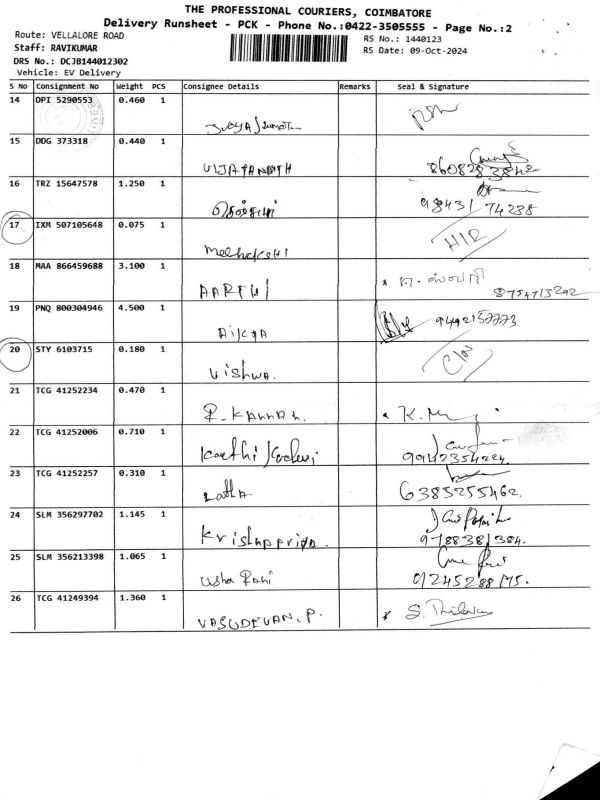 THE PROFESSIONAL COURIERS, COIMBATORE
Delivery Runsheet - PCK - Phone No.:0422-3505555 - Page No.:2
Route: VELLALORE ROAD
RS No.: 1440123
Staff: RAVIKUMAR
RS Date: 09-Oct-2024
DRS No.: DCJB144012302
Vehicle: EV Delivery
S No Consignment No Weight PCS Consignee Details Remarks Seal & Signature
14 DPI 5290553 0.460 1
15 DDG 373318 0.440 1
VIJAYANATH
8608283842
16 TRZ 15647578 1.250 1
98431 74238
17 IXM 507105648 0.075 1
Meenakshi
18 MAA 866459688 3.100 1
AARTHI
8754713202
19 PNQ 800304946 4.500 1
20 STY 6103715 0.180 1
Vishwa.
21 TCG 41252234 0.470 1
R. KANNAN.
22 TCG 41252006 0.710 1
23 TCG 41252257 0.310 1
Latha
6385255462.
24 SLM 356297702 1.145 1
Krishnapriya.
9788381384.
25 SLM 356213398 1.065 1
Usha Rani
26 TCG 41249394 1.360 1
VASUDEVAN. P.